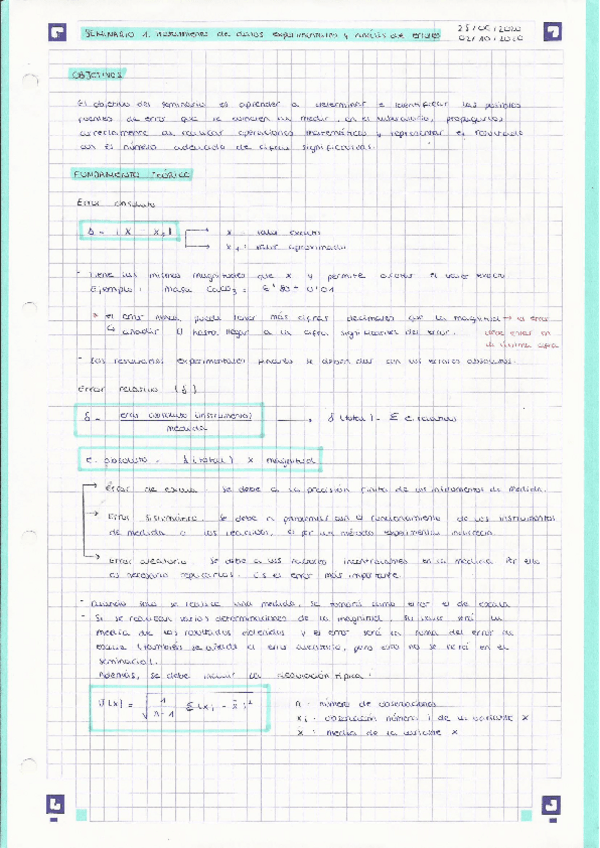 SEMINARIO 1. tratamiento de datos experimentales y análisis de errores
25/09/2020
02/10/2020
OBJETIVOS
El objetivo del seminario es aprender a determinar e identificar las posibles
fuentes de error que se cometen al medir, en el laboratorio, propagarlos
correctamente al realizar operaciones matemáticas y representar el resultado
con el número adecuado de cifras significativas.
FUNDAMENTO TEÓRICO
Error absoluto
Δ = | X - X₁ |
x = valor exacto
x₁ = valor aproximado
- Tiene las mismas magnitudes que x y permite acotar el valor exacto
Ejemplo: Masa CaCO₃ =
el error nunca puede tener más cifras decimales que la magnitud → el error
↳ añadir 0 hasta llegar a la cifra significativa del error.
debe estar en
la última cifra
- Los resultados experimentales siempre se deben dar con los errores absolutos.
Error relativo (δ)
δ = error absoluto (instrumento) / medida → δ(total) = Σ e. relativos
e. absoluto = δ(total) x magnitud
Error de escala. Se debe a la precisión finita de un instrumentos de medida.
Error Sistemático. Se debe a problemas con el funcionamiento de los instrumentos
de medida o los reactivos, o por un método experimental incorrecto
Error aleatorio se debe a los factores incontrolables en la medida. Por ello
es necesario replicarlos. Es el error más importante.
- Cuando solo se realice una medida, se tomará como error el de escala
- Si se realizan varias determinaciones de la magnitud, su valor será la
media de los resultados obtenidos y el error será la suma del error de
escala (también se añade el error aleatorio, pero esto no se verá en el
seminario).
Además, se debe incluir la desviación típica:
σ(x) = √ 1/n-1 Σ(xᵢ - x̄)²
n = número de observaciones
xᵢ = observación número i de la variante x
x̄ = media de la variante x